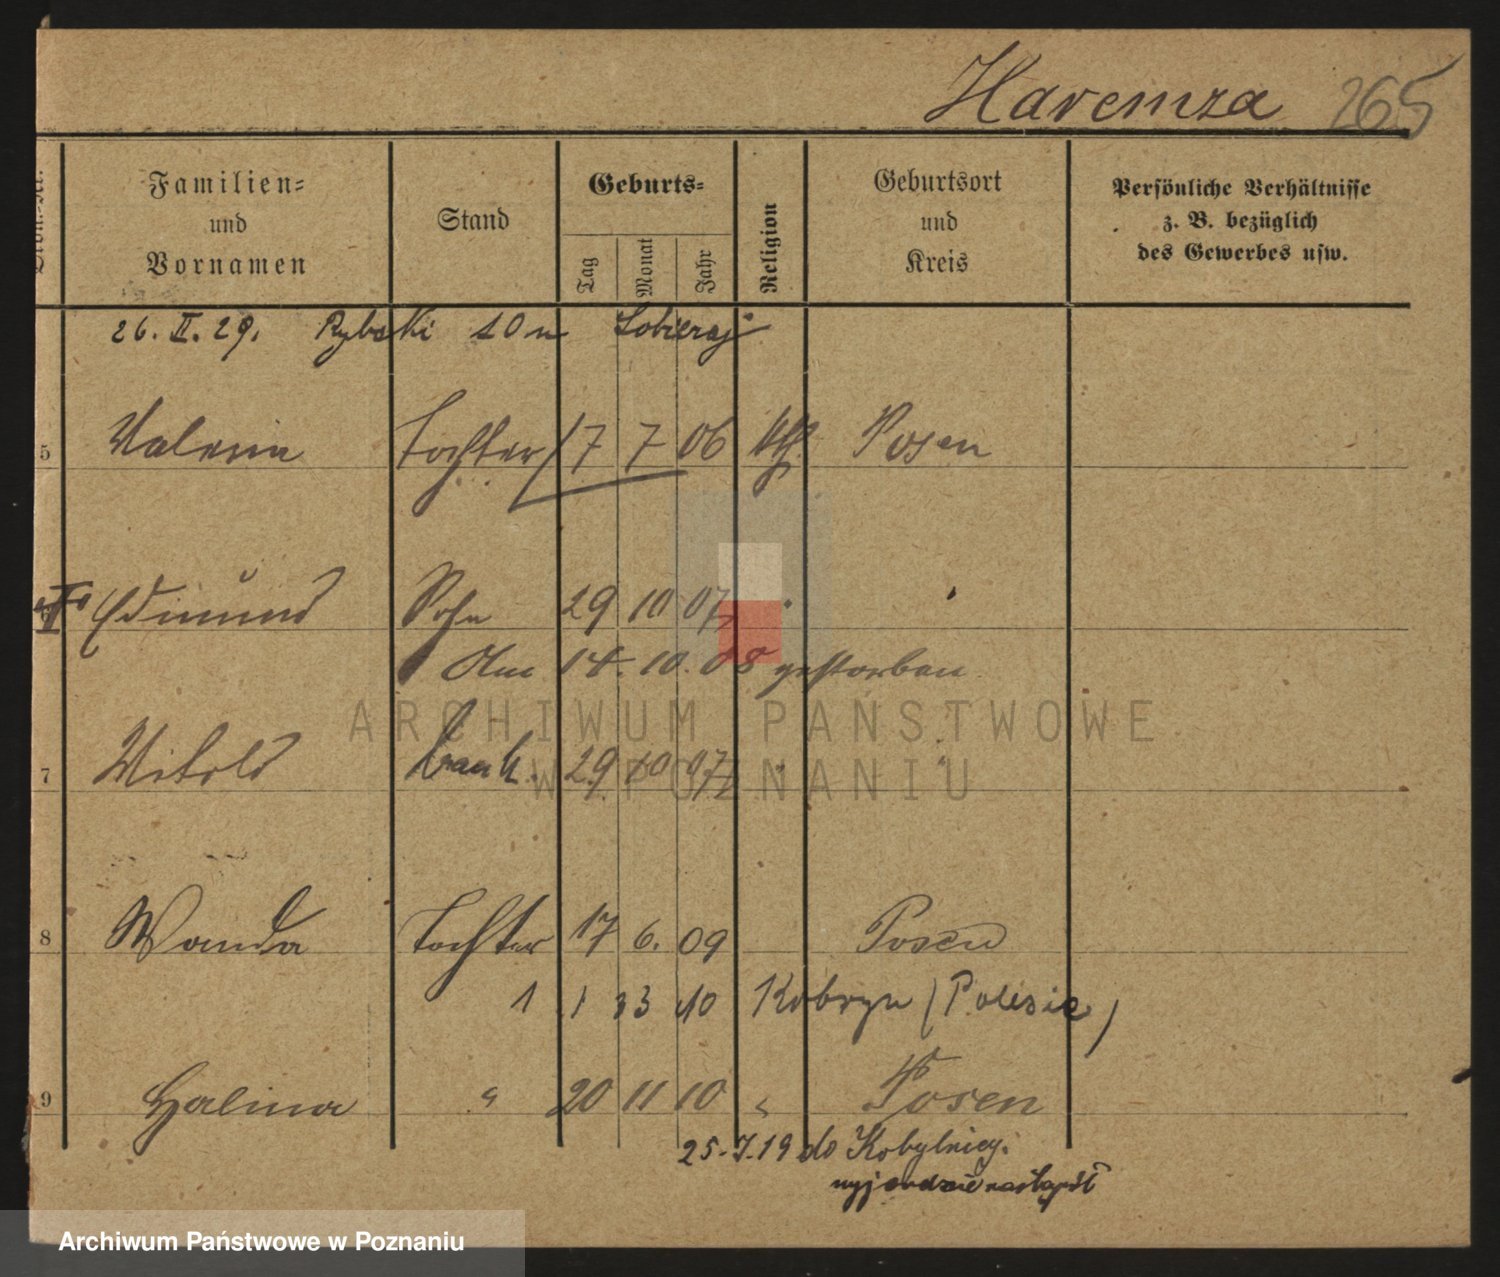 Haremza 265
Familien=
und
Vornamen
Stand
Geburts=
Tag
Monat
Jahr
Religion
Geburtsort
und
Kreis
Persönliche Verhältnisse
z. B. bezüglich
des Gewerbes usw.
26. II. 29. Rybaki 10 u Sobieraj
5 Valeria Tochter 17 7 06 kth Posen
Edmund Sohn 29 10 07
Am 14. 10. 08 gestorben
7 Witold 29 10 07
8 Wanda Tochter 17 6. 09 Posen
1 1 33 10 Kobryn (Polesie)
9 Halina " 20 11 10 " Posen
25.7.19 do Kobylnicy.
ARCHIWUM PAŃSTWOWE
W POZNANIU
Archiwum Państwowe w Poznaniu